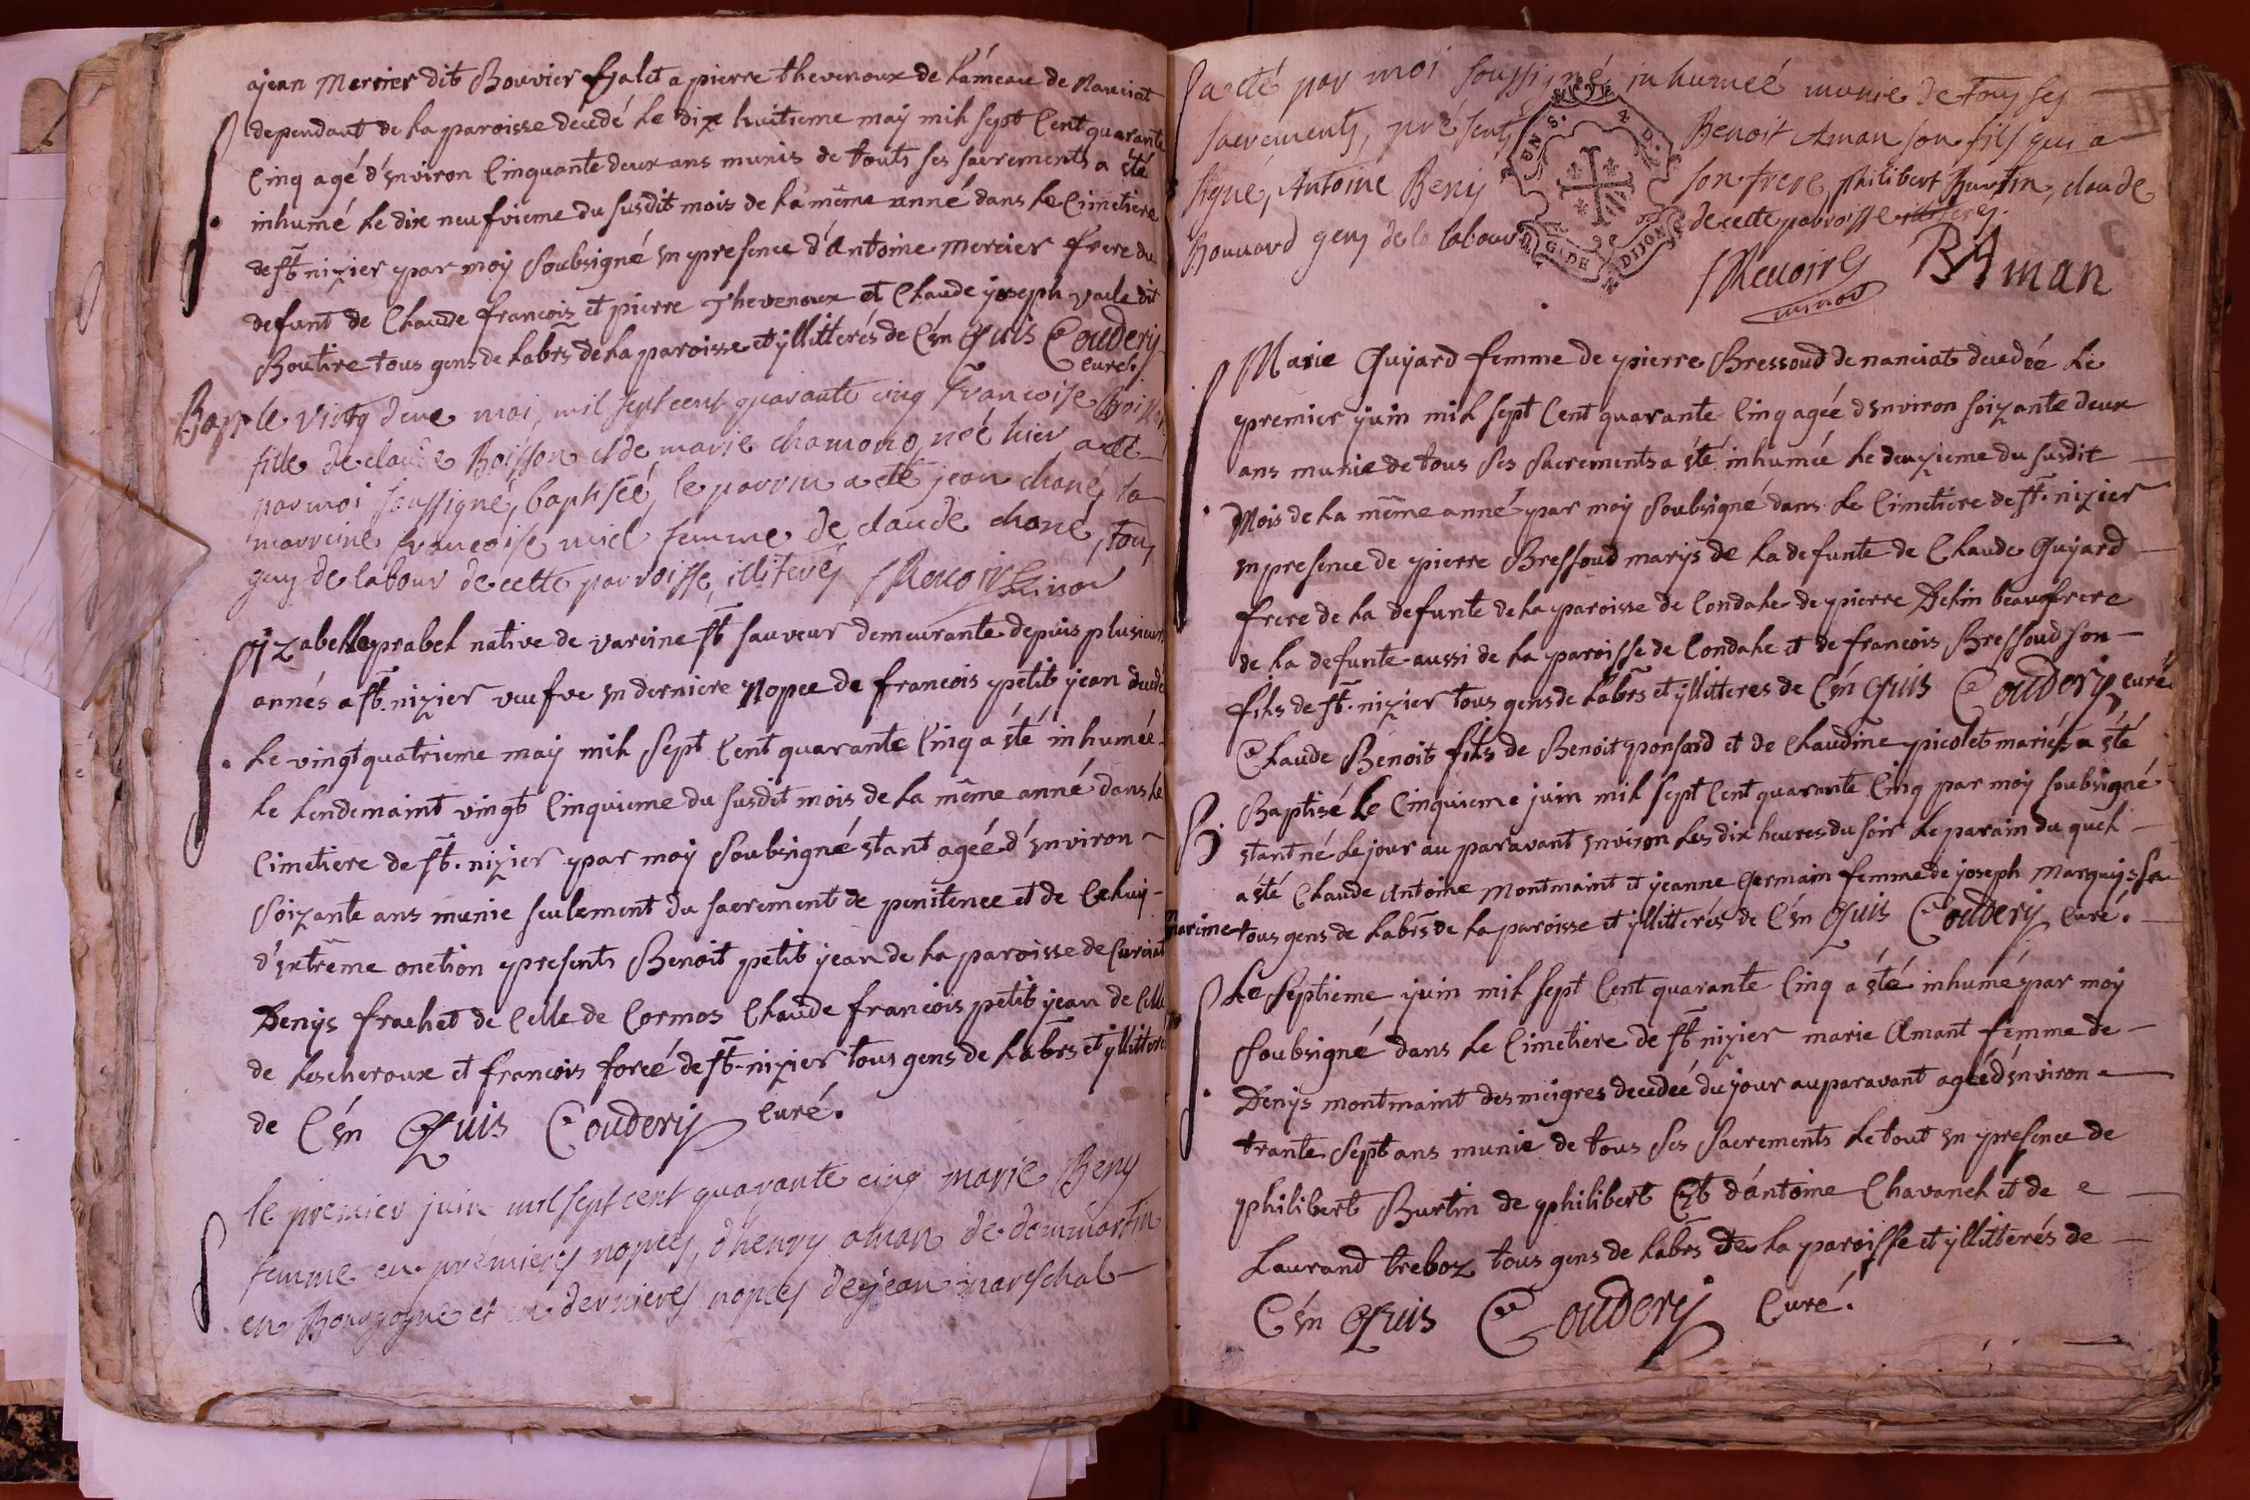 ajean Mercier dit Bouvier fvalet a pierre thevenoux de hameau de Nanciat
dependant de la paroisse decedé le dix huitieme may mil sept Cent quarante
Cinq agé d'environ Cinquante deux ans munis de touts ses sacrements a été
inhumé le dix neufvieme du susdit mois de la même anné dans le Cimetiere
de st nizier par moy soubsigné en presence d'antoine mercier frere du
defunt de Claude francois et pierre Thevenoux et Claude joseph vacle dit
Boutire tous gens de labrs de la paroisse et yllitterés de C'en Quis Coudery
curé.
Bap le vingt deux mai, mil sept cent quarante cinq francoise Boisson
fille de claude Boisson et de marie chamono, neé hier a eté
par moi soussigné, baptiseé, le parrin a eté jean chané, la
marreine francoise niel femme de claude chané, tous
gens de labour de cette parroisse, illiterés
yzabelle prabel native de vareine st sauveur demeurante depuis plusieurs
annés a st. nizier veufve en derniere Nopce de francois petit jean decedé
le vingt quatrieme may mil sept Cent quarante Cinq a été inhumée
le lendemaint vingt Cinquieme du susdit mois de la même anné dans le
Cimetiere de st. nizier par moy soubsigné etant ageé d'environ
soizante ans munie seulement du sacrement de penitence et de Celuy
d'extrême onction presents Benoit petit jean de la paroisse de Curciat
Denys frachet de Celle de Cormos Claude francois petit jean de Celle
de Lescheroux et francois foreé de st. nizier tous gens de labrs et yllitteré
de C'en Quis Coudery curé.
le premier juin mil sept cent quarante cinq marie Beny
femme en premieres nopces, d'henry aman de dommartin
en Bourgogne et en dernieres nopces de jean mareschal
a eté par moi soussigné, inhumeé munie de tous ses
sacrements, présents Benoit Aman son fils qui a
signé, Antoine Beny son frere, philibert Burtin, claude
Bouvard gens de labour de cette parroisse illiterés.
BAman
Marie Guyard femme de pierre Bressoud de nanciat decedée le
premier juin mil sept Cent quarante Cinq agée d'environ soizante deux
ans munie de tous ses sacrements a été inhumée le deuzieme du susdit
Mois de la même anné par moy soubsigné dans le Cimetiere de st. nizier
en presence de pierre Bressoud marys de la defunte de Claude Guyard
frere de la defunte de la paroisse de Condale de pierre Delin beaufrere
de la defunte aussi de la paroisse de Condale et de francois Bressoud son
fils de st. nizier tous gens de labrs et yllitteres de C'en Quis Coudery curé
Claude Benoit fils de Benoit ponsard et de Claudine picolet mariés a été
B. Baptisé le Cinquieme juin mil sept Cent quarante Cinq par moy soubsigné
etant né le jour au paravant environ les dix heures du soir le parain du quel
a été Claude Antoine Montmaint et jeanne Germain femme de joseph Marquis sa
mareine tous gens de labrs de la paroisse et yllitterés de C'en Quis Coudery Curé.
Le septieme juin mil sept Cent quarante Cinq a été inhumé par moy
soubsigné dans le Cimetiere de st. nizier marie Amant femme de
Denys montmaint des meigres decedeé du jour auparavant ageé d'environ
trante sept ans munie de tous ses sacrements le tout en presence de
philibert Burtin de philibert Est d'antoine Chavanel et de
Laurand treboz tous gens de labrs de la paroisse et yllitterés de
C'en Quis Coudery Curé.